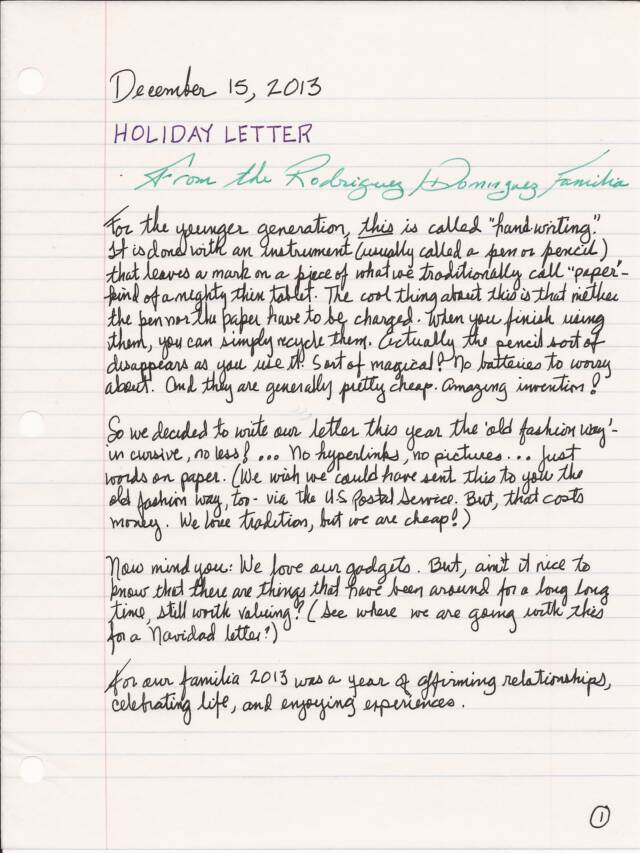 December 15, 2013
HOLIDAY LETTER
From the Rodriguez/Dominguez Familia
For the younger generation, this is called "handwriting."
It is done with an instrument (usually called a pen or pencil)
that leaves a mark on a piece of what we traditionally call "paper"-
kind of a mighty thin tablet. The cool thing about this is that neither
the pen nor the paper have to be charged. When you finish using
them, you can simply recycle them. Actually the pencil sort of
disappears as you use it. Sort of magical? No batteries to worry
about. And they are generally pretty cheap. Amazing invention!
So we decided to write our letter this year the 'old fashion way'-
in cursive, no less! ... No hyperlinks, no pictures... Just
words on paper. (We wish we could have sent this to you the
old fashion way, too - via the U.S. Postal Service. But, that costs
money. We love tradition, but we are cheap!)
Now mind you: We love our gadgets. But, ain't it nice to
know that there are things that have been around for a long long
time, still worth valuing? (See where we are going with this
for a Navidad letter?)
For our familia 2013 was a year of affirming relationships,
celebrating life, and enjoying experiences.
1